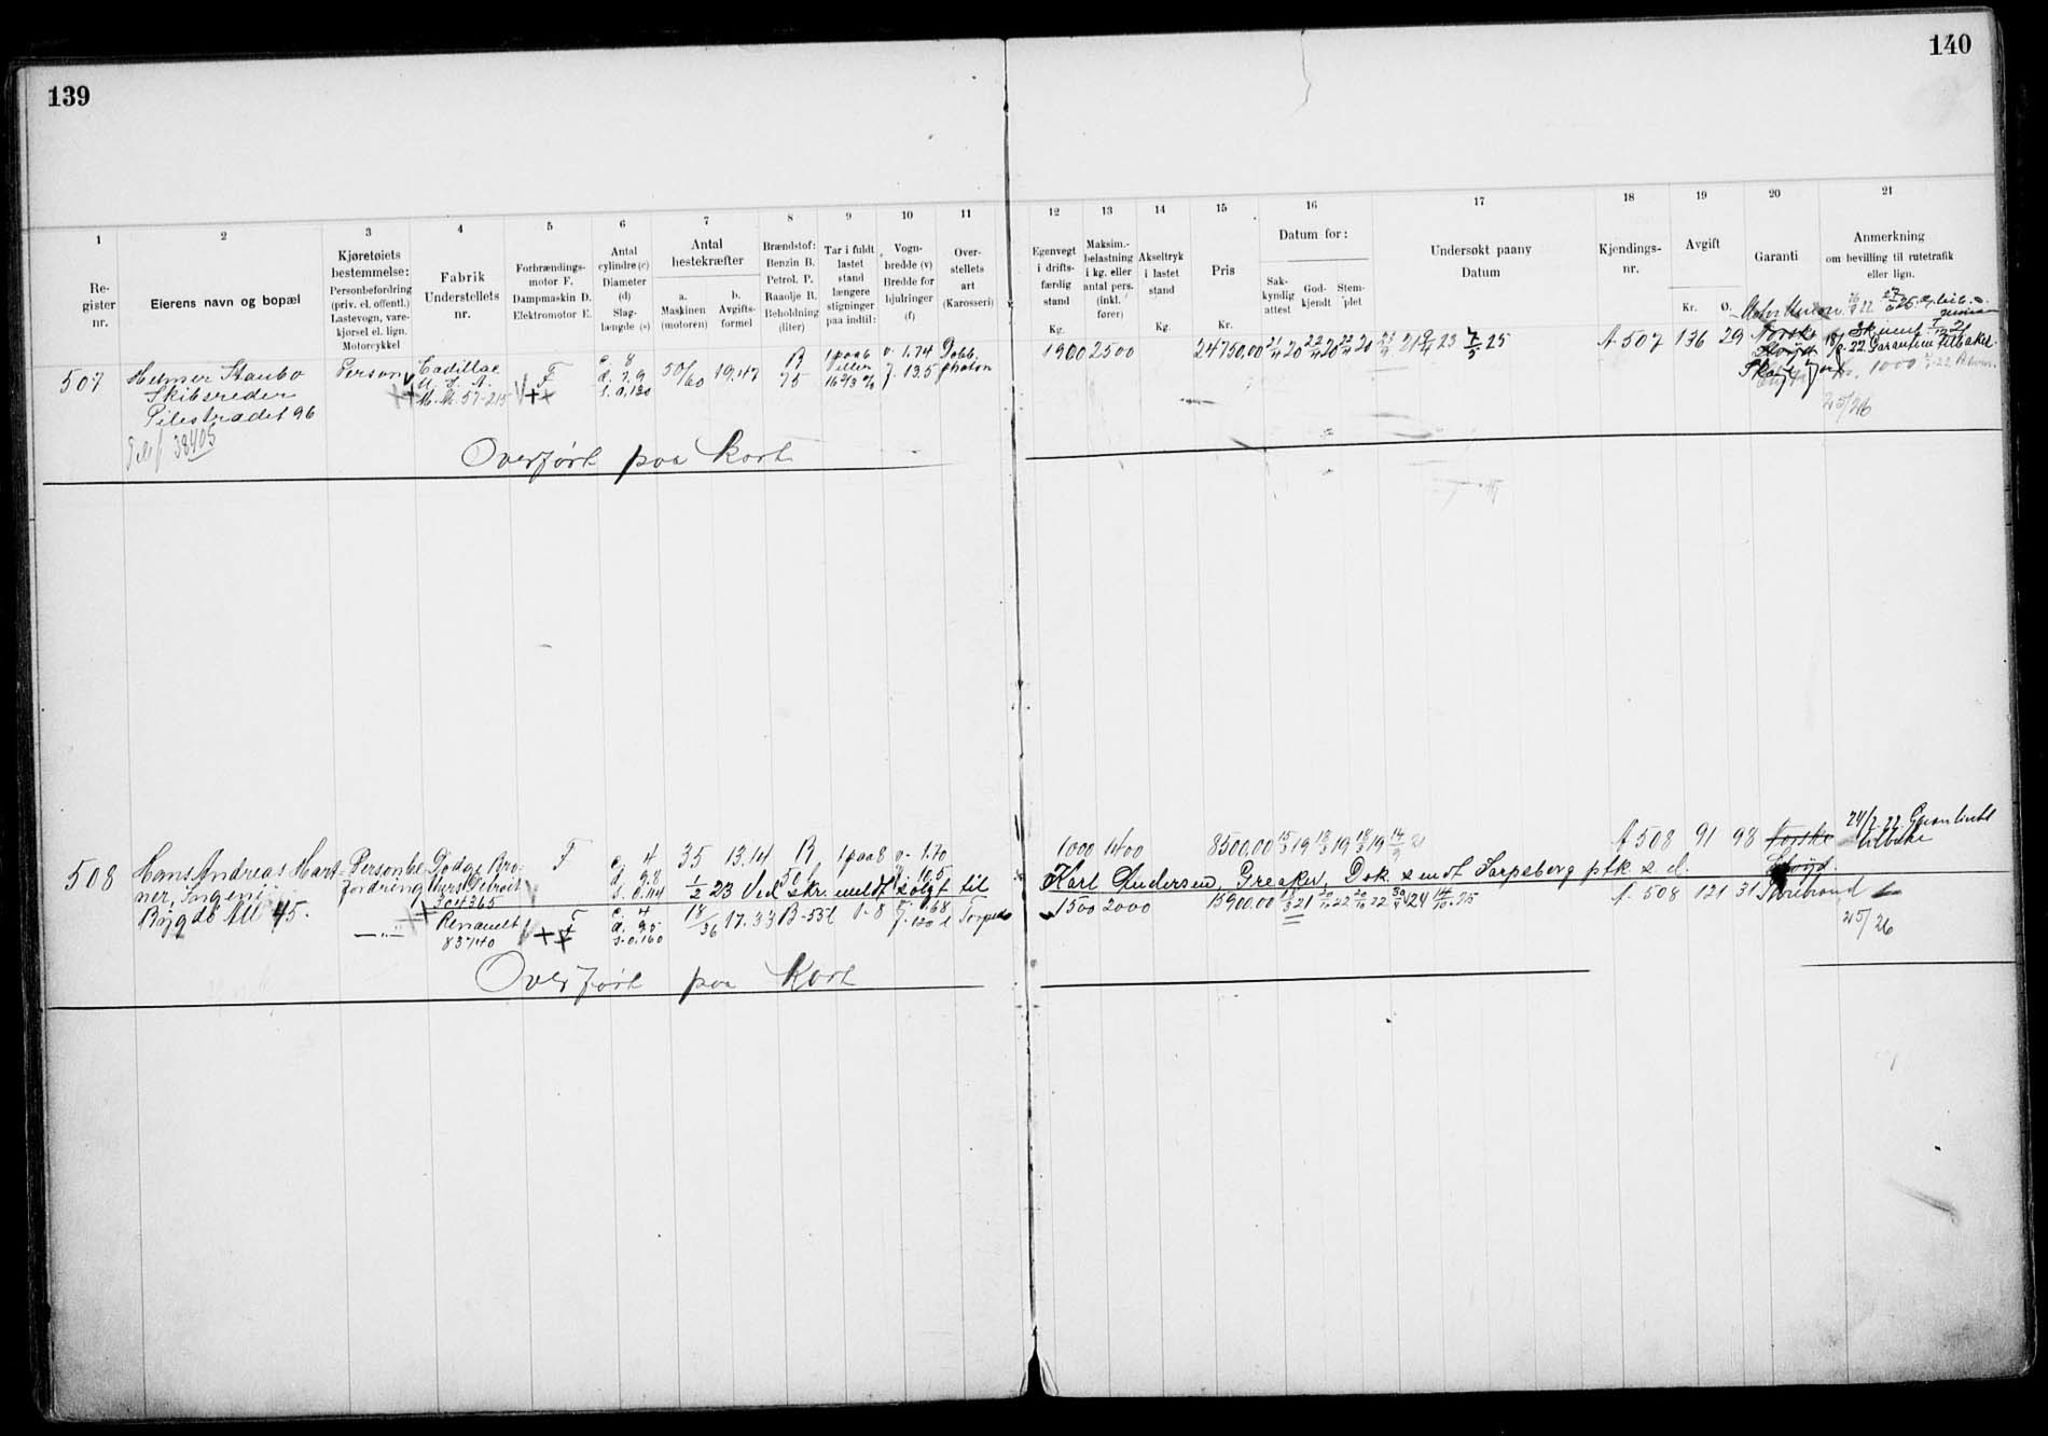 139
140
1
2
3
4
5
6
7
8
9
10
11
12
13
14
15
16
17
18
19
20
21
Re-
gister
nr.
Eierens navn og bopæl
Kjøretøiets
bestemmelse:
Personbefordring
(priv. el. offentl.)
Lastevogn, vare-
kjørsel el. lign.
Motorcykkel
Fabrik
Understellets
nr.
Forbrændings-
motor F.
Dampmaskin D.
Elektromotor E.
Antal
cylindre (c)
Diameter
(d)
Slag-
længde (s)
Antal
hestekræfter
a.
Maskinen
(motoren)
b.
Avgifts-
formel
Brændstof:
Benzin B.
Petrol. P.
Raaolje R.
Beholdning
(liter)
Tar i fuldt
lastet
stand
længere
stigninger
paa indtil:
Vogn-
bredde (v)
Bredde for
hjulringer
(f)
Over-
stellets
art
(Karosseri)
Egenvegt
i drifts-
færdig
stand
Kg.
Maksim.-
belastning
i kg. eller
antal pers.
(inkl.
fører)
Akseltryk
i lastet
stand
Kg.
Pris
Kr.
Datum for:
Sak-
kyndig
attest
God-
kjendt
Stem-
plet
Undersøkt paany
Datum
Kjendings-
nr.
Avgift
Kr.
Ø.
Garanti
Anmerkning
om bevilling til rutetrafik
eller lign.
507
Helmer Staubo
Skibsreder
Pilestrædet 96
Telef 38405
Person
Cadillac
U. S. A.
M. N. 57-215
F
c. 8
d. 7.9
s. 0,130
50/60
19.47
B
75
1 paa 6
v. 1.74
f. 13.5
Dobb.
phaton
1900
2500
24750.00
21/4 20
22/4 20
22/4 20
23
7/5 25
A-507
136
29
Norske
Garantien tilbakel
1000
25/26
Overført paa Kort
508
Hans Andreas Mart-
ner, Ingeniør
Bygdø Alle 45.
Personbe-
fordring
Dodge Bro-
thers Detroit
304365
F
c. 4
d. 9.8
s. 0.114
35
13.14
B
1 paa 8
v- 1.70
1000
1400
8500.00
15/3 19
18/3 19
18/3 19
A 508
91
98
Norske
tilbake
1/2 23 Ved skr. meldt solgt til
Karl Andersen, Greaker, Dok. sendt Sarpsborg ptk s. d.
Renault
83740
F
c. 4
d. 95
s. 0.160
18/36
17.33
B-55l
1-8
v. 1.68
Torpedo
1500
2000
15900.00
A. 508
121
31
Storebrand
25/26
Overført paa Kort